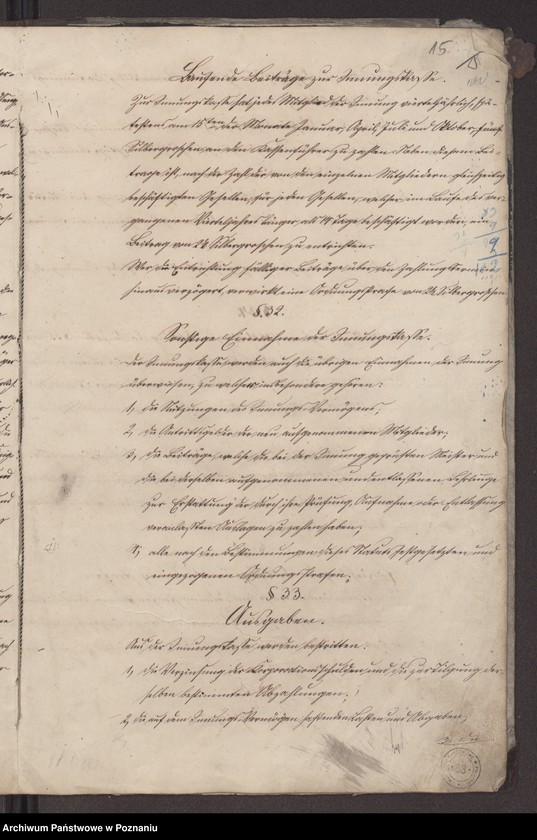 15.
Laufende Beiträge zur Innungskasse.
Zur Innungskasse hat jedes Mitglied der Innung vierteljährlich, spä-
testens am 15ten der Monate Januar, April, Juli und Oktober, fünf
Silbergroschen an den Kassenführer zu zahlen. Neben diesem Bei-
trage ist, nach der Zahl der von den einzelnen Mitgliedern gleichzeitig
beschäftigten Gesellen, für jeden Gesellen, welcher im Laufe des ver-
gangenen Vierteljahres länger als 14 Tage beschäftigt worden, ein
Beitrag von 2½ Silbergroschen zu entrichten.
Wer die Entrichtung fälliger Beiträge über den Zahlungstermin
hinaus verzögert, verwirkt eine Ordnungsstrafe von 2½ Silbergroschen.
§. 32.
Sonstige Einnahme der Innungskasse.
Der Innungskasse werden auch die übrigen Einnahmen der Innung
überwiesen, zu welchen insbesondere gehören:
1, die Nutzungen des Innungs-Vermögens;
2, die Antrittsgelder der neu aufgenommenen Mitglieder;
3, die Beiträge, welche die bei der Innung geprüften Meister und
die bei derselben aufgenommenen und entlassenen Lehrlinge
zur Erstattung der durch ihre Prüfung, Aufnahme oder Entlassung
veranlaßten Auslagen zu zahlen haben;
4, alle nach den Bestimmungen dieses Statuts festgesetzten und
eingezogenen Ordnungsstrafen.
§ 33.
Ausgaben.
Aus der Innungskasse werden bestritten:
1, die Verzinsung der Korporationsschulden und die zur Tilgung der-
selben bestimmten Abzahlungen;
2, die auf dem Innungs-Vermögen haftenden Lasten und Abgaben;
Archiwum Państwowe w Poznaniu